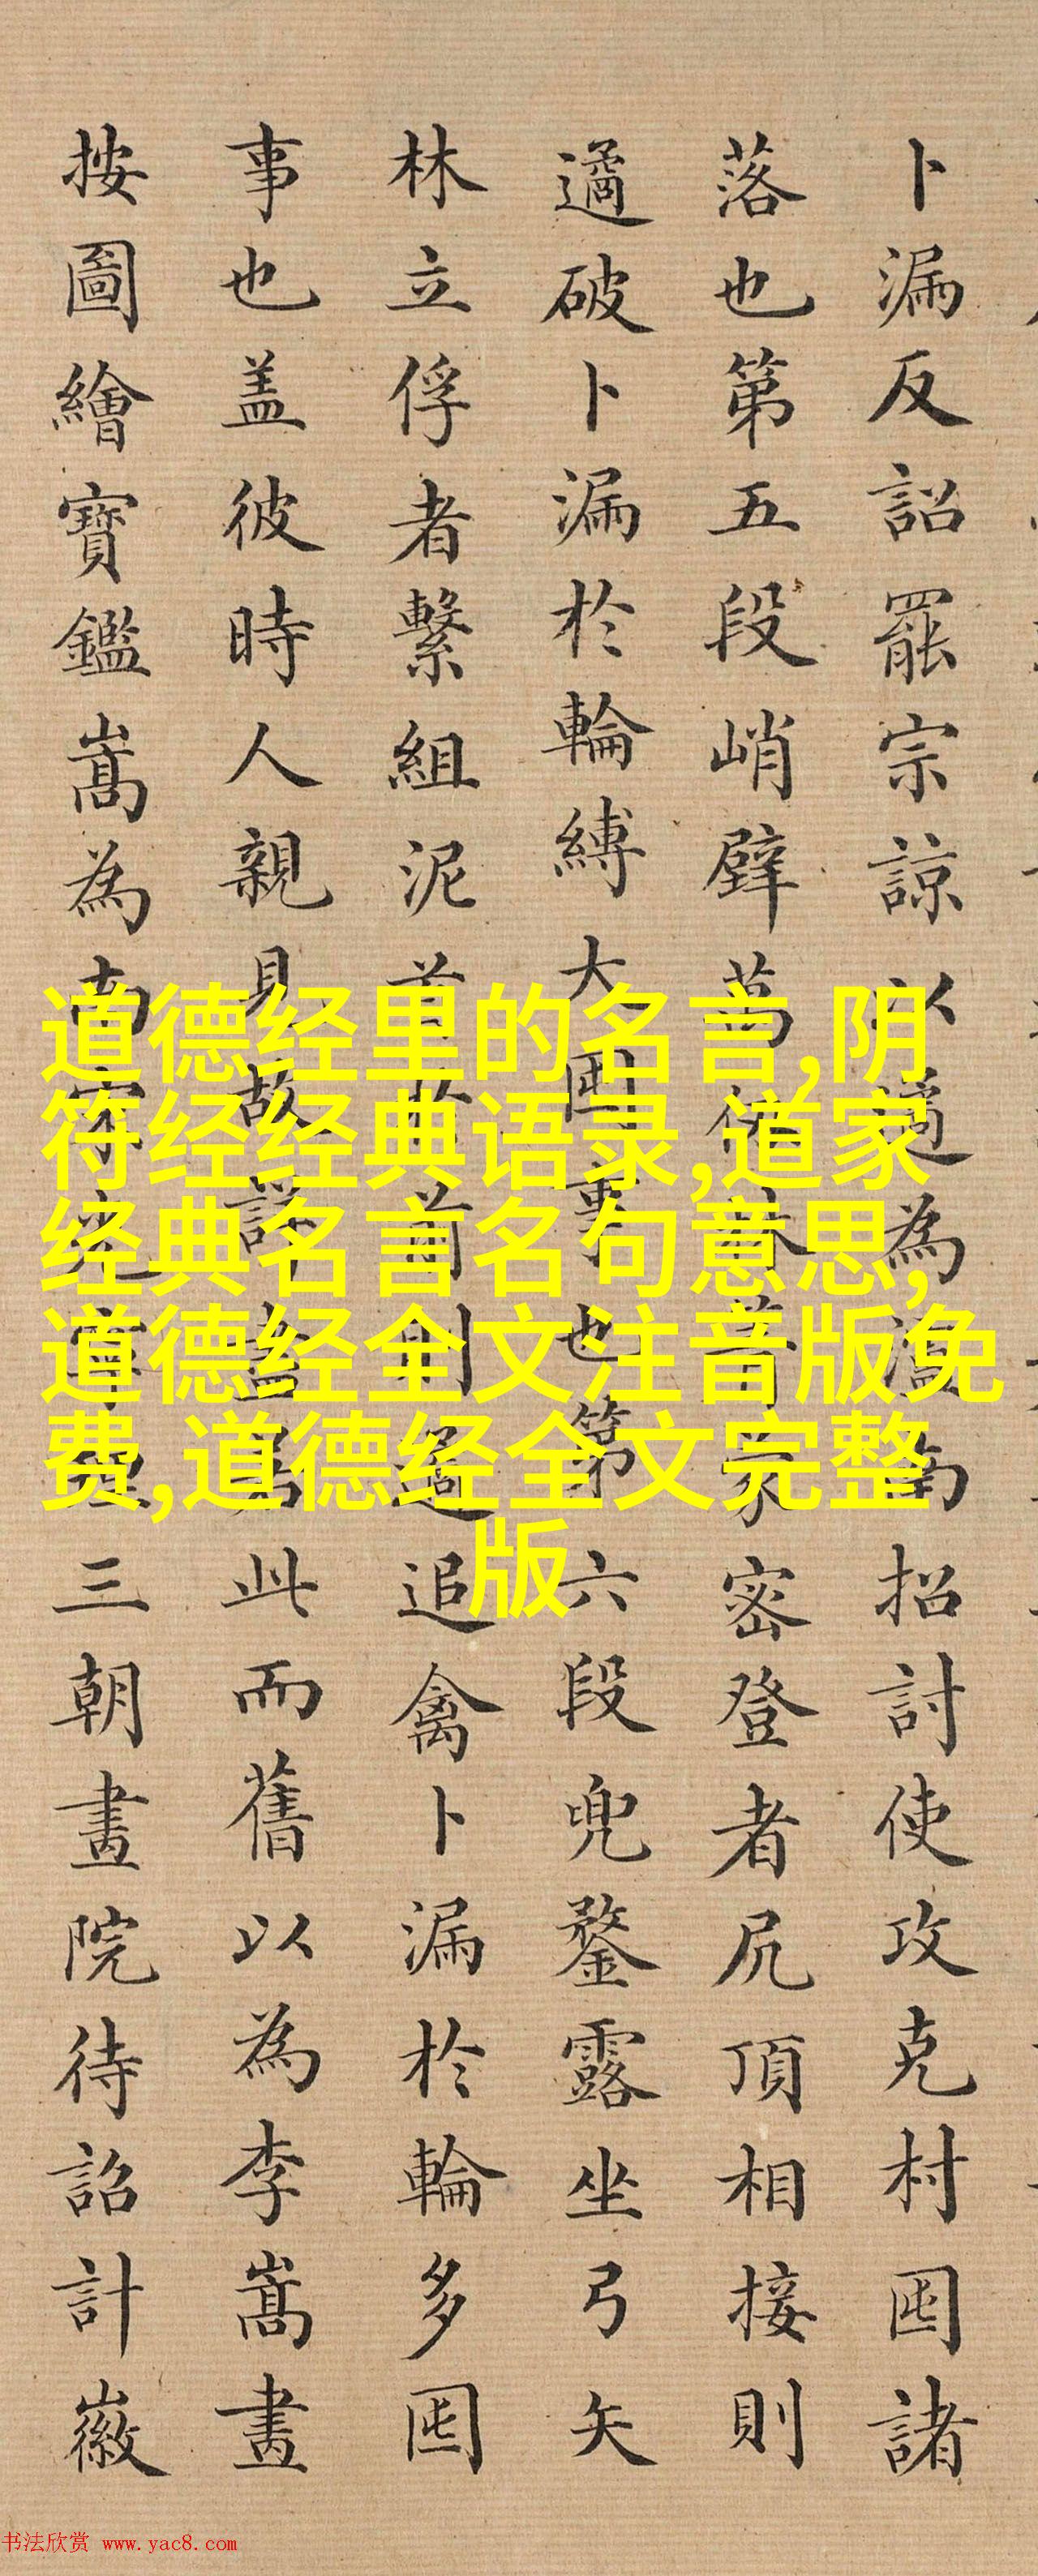 卜漏反詔罷宗諒以遹為瀘南招討使攻克村囤諸
落也第五段峭壁萬仞菁蒙密登者尻頂相接則
遹破卜漏於輪縛大囤事也第六段兜鍪露坐弓矢
林立俘者繫組泥首於前則遹追禽卜漏於輪多囤
事也盖彼時人親見故詳盡若此而舊以為李嵩畫
按圖繪寶鑑嵩為南宋光寧理三朝畫院待詔計徽
道德经里的名言,阴
符经经典语录,道家
经典名言名句意思,
道德经全文注音版免
费,道德经全文完整
版
书法欣赏 www.yac8.com